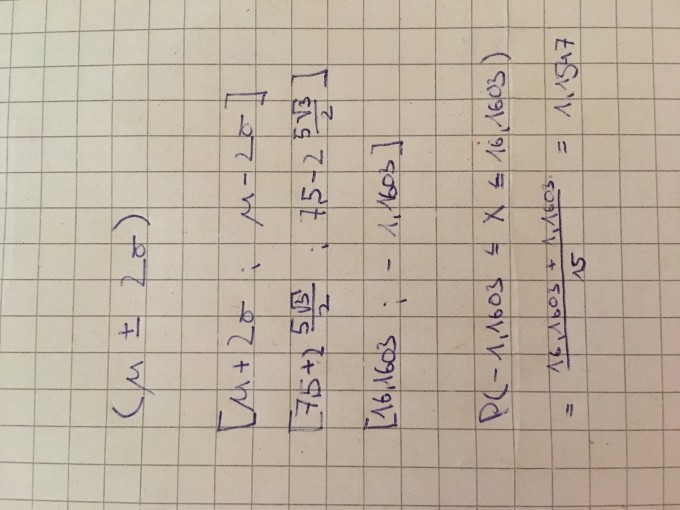 (μ ± 2σ)
[μ+2σ ; μ-2σ]
[7,5+2 5√3/2 ; 7,5-2 5√3/2]
[16,1603 ; -1,1603]
P(-1,1603 ≤ X ≤ 16,1603)
= 16,1603 + 1,1603 / 15 = 1,1547